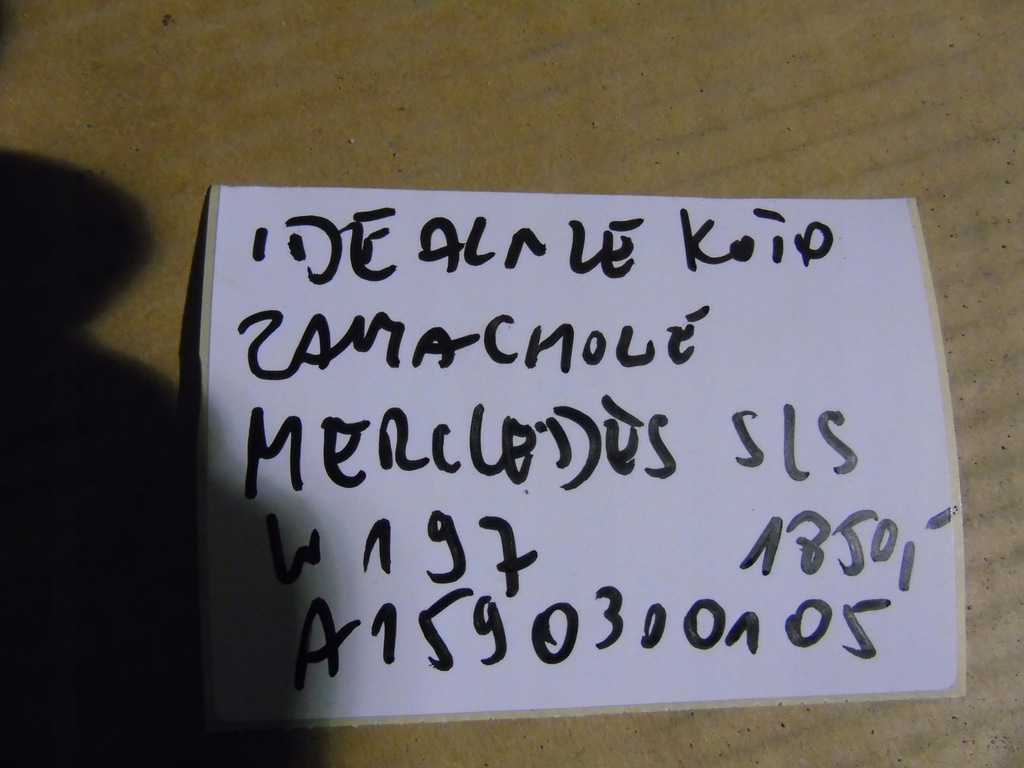 IDEALNE KOŁO
ZAMACHOWE
MERCEDES SLS
W197 1850,-
A1590300105